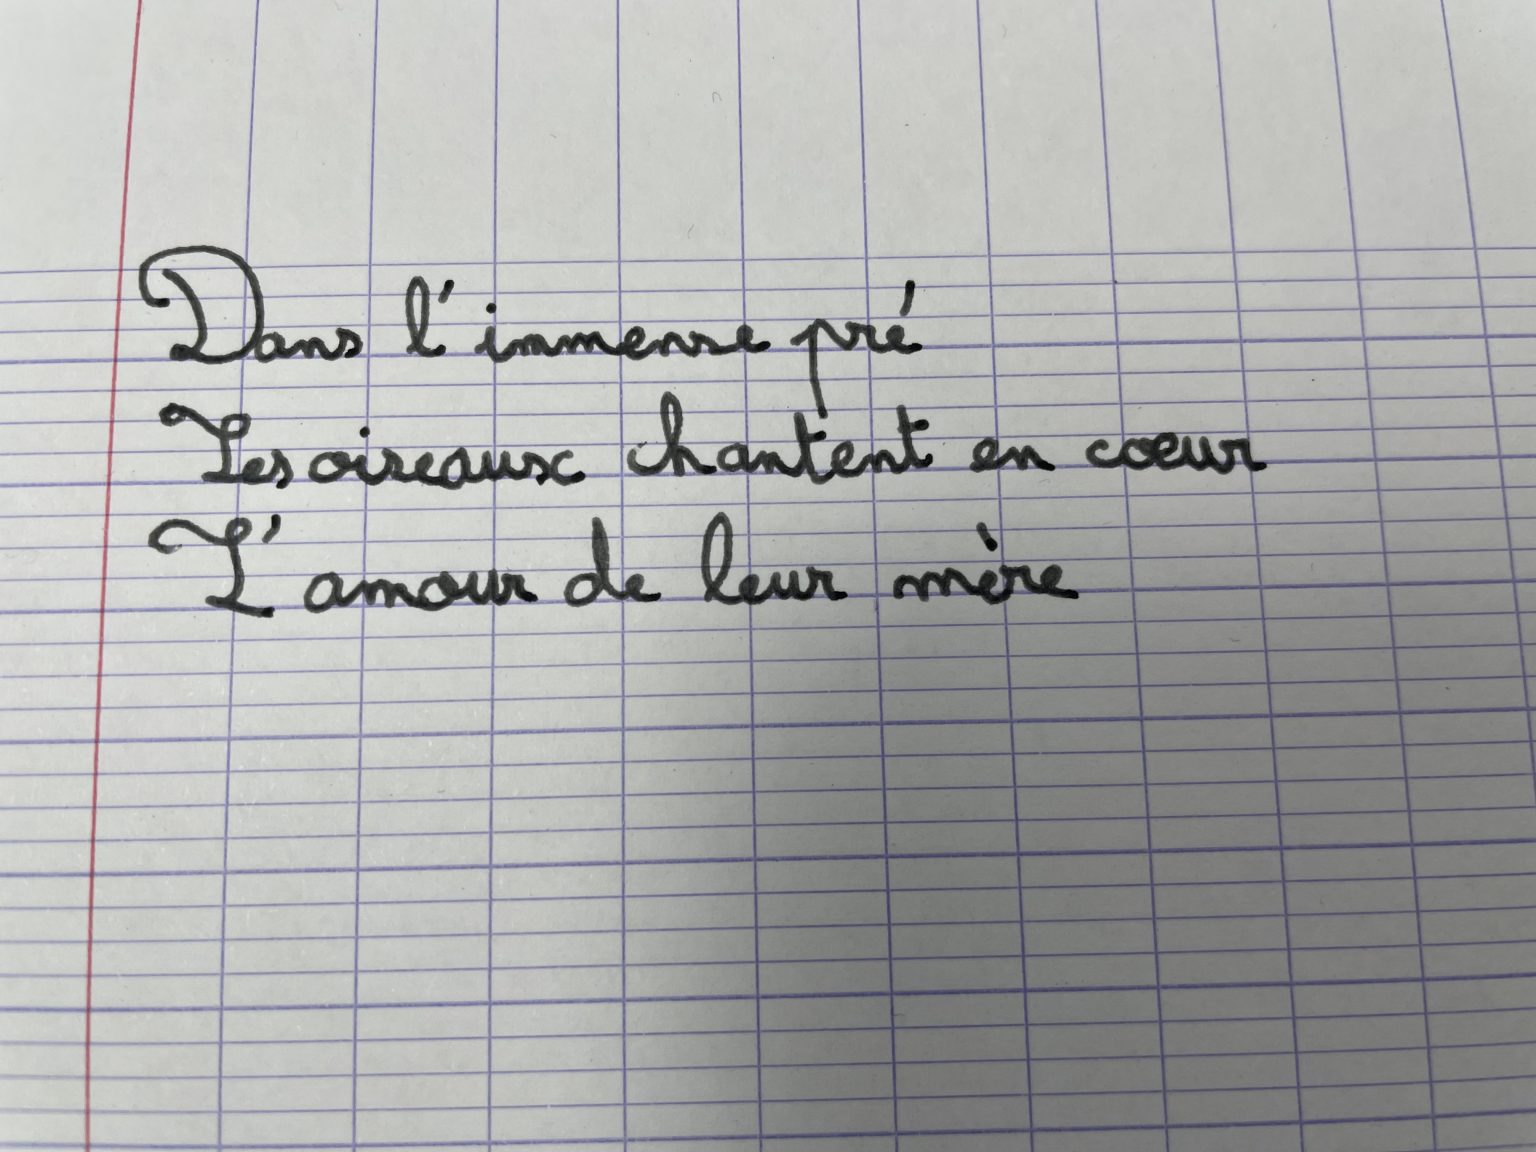 Dans l'immense pré
Les oiseaux chantent en cœur
L'amour de leur mère